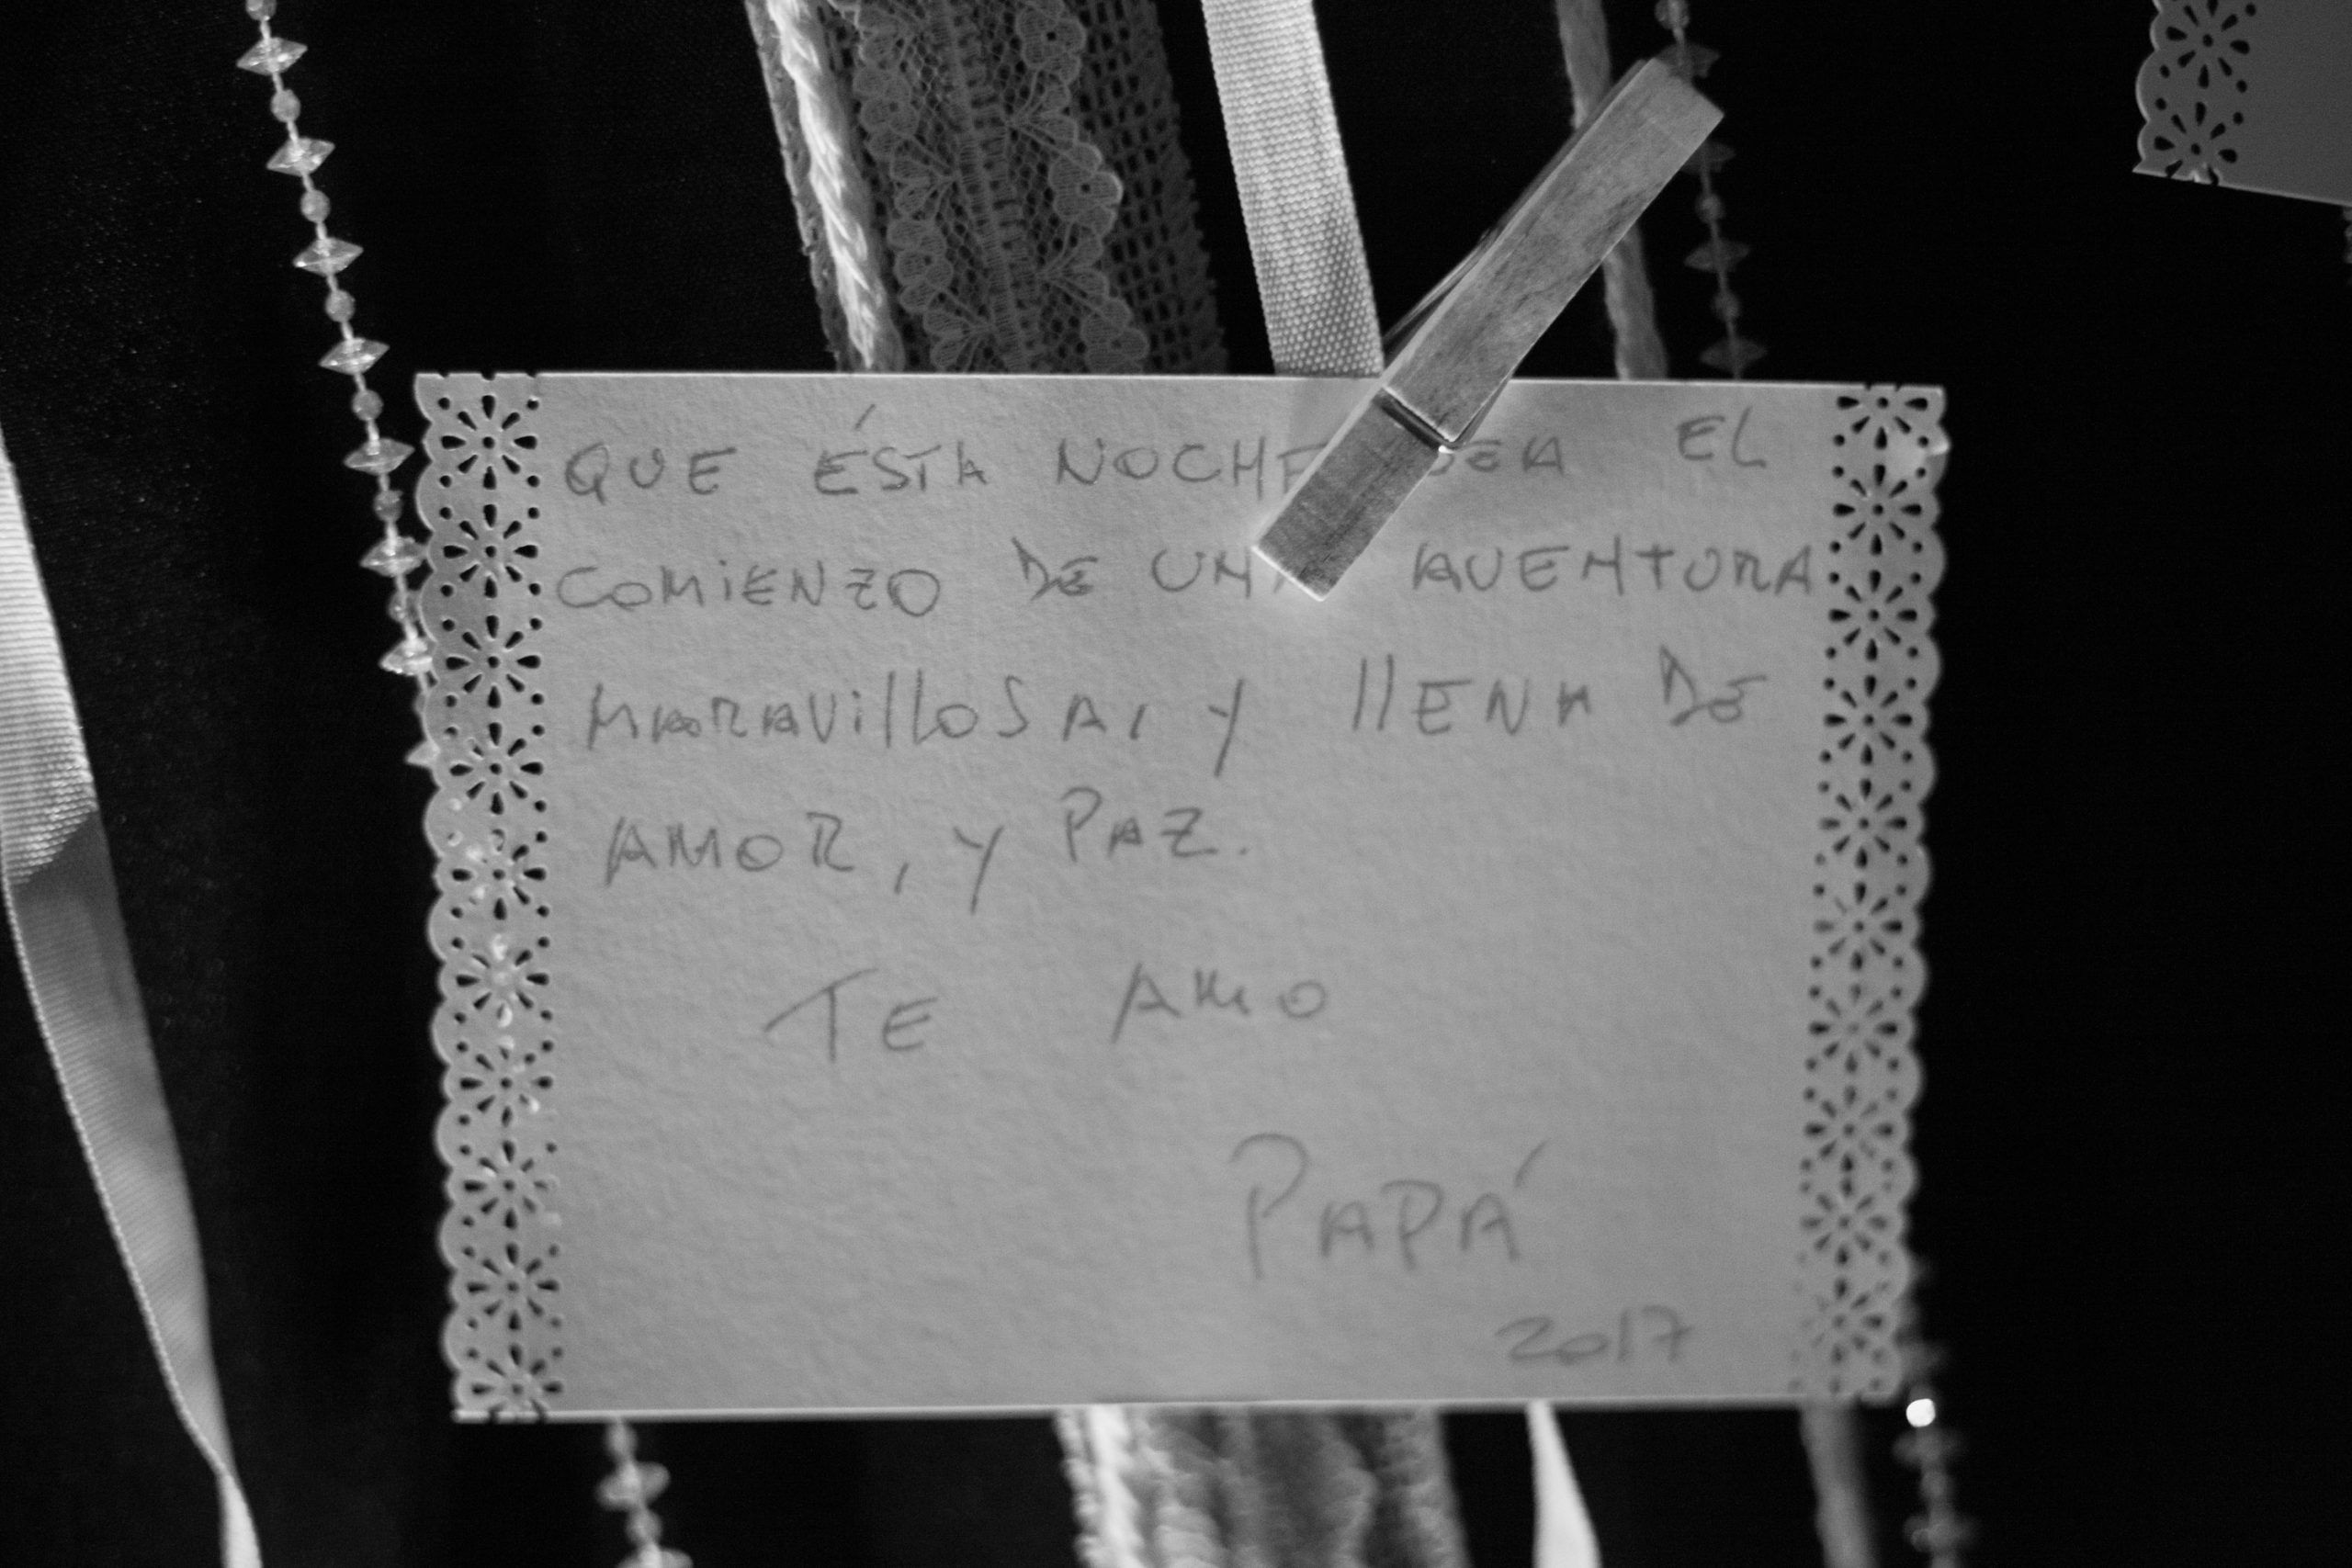 QUE ÉSTA NOCHE SEA EL
COMIENZO DE UNA AVENTURA
MARAVILLOSA, Y LLENA DE
AMOR, Y PAZ.
TE AMO
PAPÁ
2017